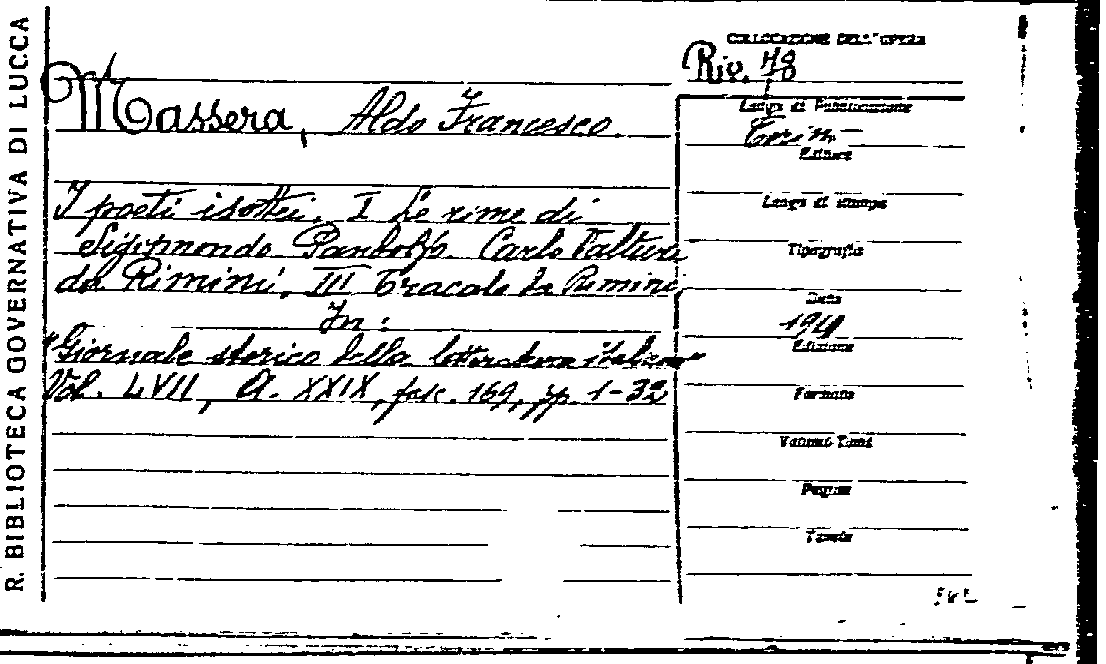 R. BIBLIOTECA GOVERNATIVA DI LUCCA
COLLOCAZIONE DELL'OPERA
Riv. 48
Massera, Aldo Francesco
I poeti isottei. I Le rime di
Sigismondo Pandolfo. Carlo Valturi
da Rimini. III Tracalo da Rimini
In:
"Giornale storico della letteratura italiana"
Vol. LVII, A. XXIX, fasc. 169, pp. 1-32
Luogo di Pubblicazione
Torino
Editore
Luogo di stampa
Tipografia
Data
1911
Edizione
Formato
Volumi Tomi
Pagine
Tavole